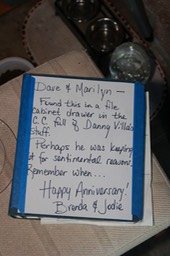 Dave & Marilyn —
Found this in a file
cabinet drawer in the
C.C. full of Danny Villa's
stuff.
Perhaps he was keeping
it for sentimental reasons.
Remember when....
Happy Anniversary!
Brenda & Jodie